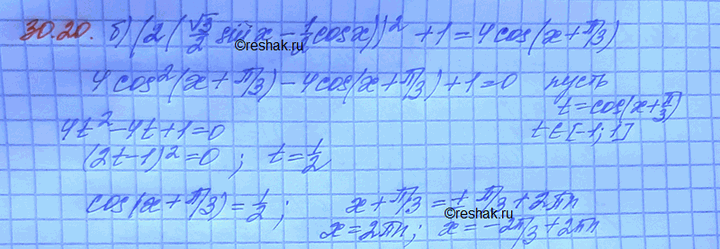 30.20. б) (2(√3/2 sin x - 1/2 cos x))² + 1 = 4cos(x+π/3)
©reshak.ru
4cos²(x+π/3) - 4cos(x+π/3) + 1 = 0 пусть
t = cos(x+π/3)
4t² - 4t + 1 = 0 t ∈ [-1; 1]
(2t-1)² = 0 ; t = 1/2
cos(x+π/3) = 1/2 ; x + π/3 = ± π/3 + 2πn
©reshak.ru
x = 2πn ; x = -2π/3 + 2πn